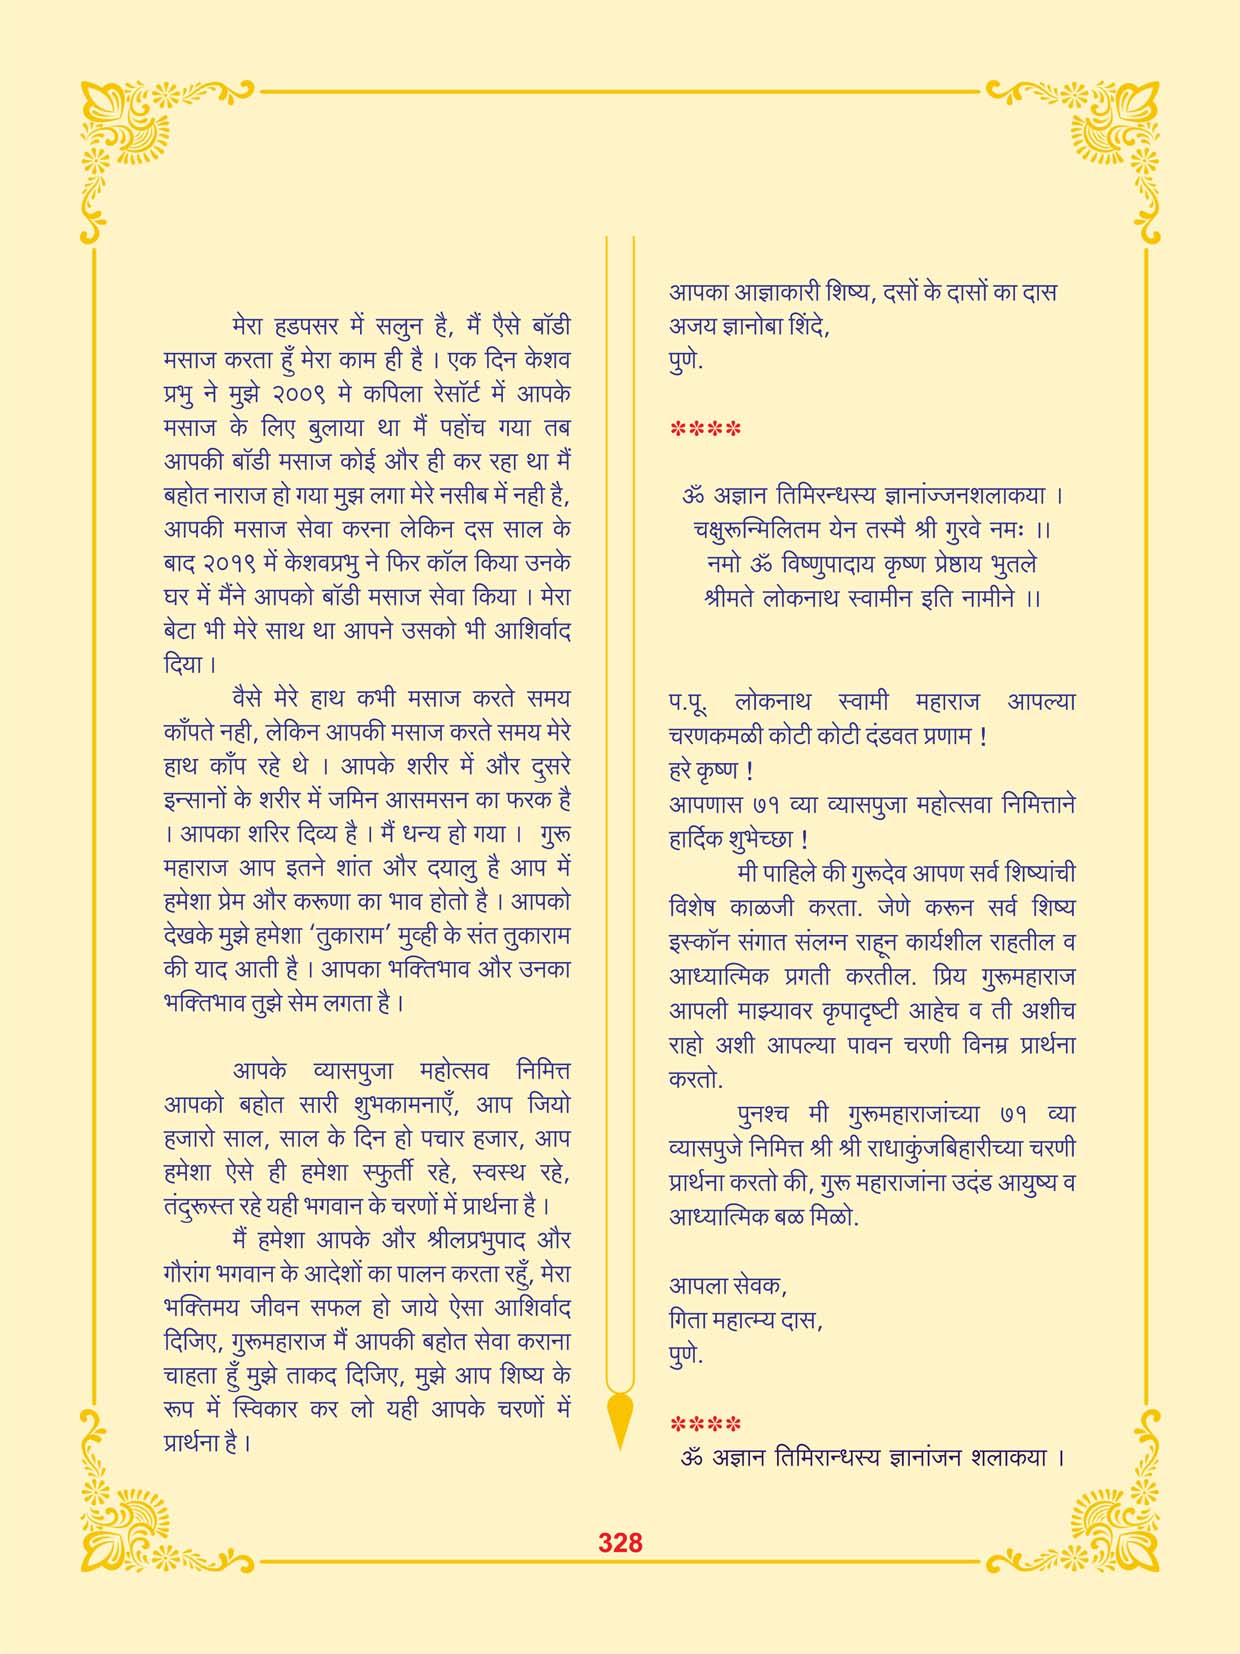 मेरा हडपसर में सलुन है, मैं ऐसे बॉडी
मसाज करता हुँ मेरा काम ही है । एक दिन केशव
प्रभु ने मुझे २००९ मे कपिला रेसॉर्ट में आपके
मसाज के लिए बुलाया था मैं पहोंच गया तब
आपकी बॉडी मसाज कोई और ही कर रहा था मैं
बहोत नाराज हो गया मुझ लगा मेरे नसीब में नही है,
आपकी मसाज सेवा करना लेकिन दस साल के
बाद २०१९ में केशवप्रभु ने फिर कॉल किया उनके
घर में मैंने आपको बॉडी मसाज सेवा किया । मेरा
बेटा भी मेरे साथ था आपने उसको भी आशिर्वाद
दिया ।
वैसे मेरे हाथ कभी मसाज करते समय
काँपते नही, लेकिन आपकी मसाज करते समय मेरे
हाथ काँप रहे थे । आपके शरीर में और दुसरे
इन्सानों के शरीर में जमिन आसमसन का फरक है
। आपका शरिर दिव्य है । मैं धन्य हो गया । गुरू
महाराज आप इतने शांत और दयालु है आप में
हमेशा प्रेम और करूणा का भाव होतो है । आपको
देखके मुझे हमेशा ‘तुकाराम’ मुव्ही के संत तुकाराम
की याद आती है । आपका भक्तिभाव और उनका
भक्तिभाव तुझे सेम लगता है ।
आपके व्यासपुजा महोत्सव निमित्त
आपको बहोत सारी शुभकामनाएँ, आप जियो
हजारो साल, साल के दिन हो पचार हजार, आप
हमेशा ऐसे ही हमेशा स्फुर्ती रहे, स्वस्थ रहे,
तंदुरूस्त रहे यही भगवान के चरणों में प्रार्थना है ।
मैं हमेशा आपके और श्रीलप्रभुपाद और
गौरांग भगवान के आदेशों का पालन करता रहुँ, मेरा
भक्तिमय जीवन सफल हो जाये ऐसा आशिर्वाद
दिजिए, गुरूमहाराज मैं आपकी बहोत सेवा कराना
चाहता हुँ मुझे ताकद दिजिए, मुझे आप शिष्य के
रूप में स्विकार कर लो यही आपके चरणों में
प्रार्थना है ।
आपका आज्ञाकारी शिष्य, दसों के दासों का दास
अजय ज्ञानोबा शिंदे,
पुणे.
****
ॐ अज्ञान तिमिरन्धस्य ज्ञानांज्जनशलाकया ।
चक्षुरून्मिलितम येन तस्मै श्री गुरवे नमः ।।
नमो ॐ विष्णुपादाय कृष्ण प्रेष्ठाय भुतले
श्रीमते लोकनाथ स्वामीन इति नामीने ।।
प.पू. लोकनाथ स्वामी महाराज आपल्या
चरणकमळी कोटी कोटी दंडवत प्रणाम !
हरे कृष्ण !
आपणास ७१ व्या व्यासपुजा महोत्सवा निमित्ताने
हार्दिक शुभेच्छा !
मी पाहिले की गुरूदेव आपण सर्व शिष्यांची
विशेष काळजी करता. जेणे करून सर्व शिष्य
इस्कॉन संगात संलग्न राहून कार्यशील राहतील व
आध्यात्मिक प्रगती करतील. प्रिय गुरूमहाराज
आपली माझ्यावर कृपादृष्टी आहेच व ती अशीच
राहो अशी आपल्या पावन चरणी विनम्र प्रार्थना
करतो.
पुनश्च मी गुरूमहाराजांच्या ७१ व्या
व्यासपुजे निमित्त श्री श्री राधाकुंजबिहारीच्या चरणी
प्रार्थना करतो की, गुरू महाराजांना उदंड आयुष्य व
आध्यात्मिक बळ मिळो.
आपला सेवक,
गिता महात्म्य दास,
पुणे.
****
ॐ अज्ञान तिमिरान्धस्य ज्ञानांजन शलाकया ।
328